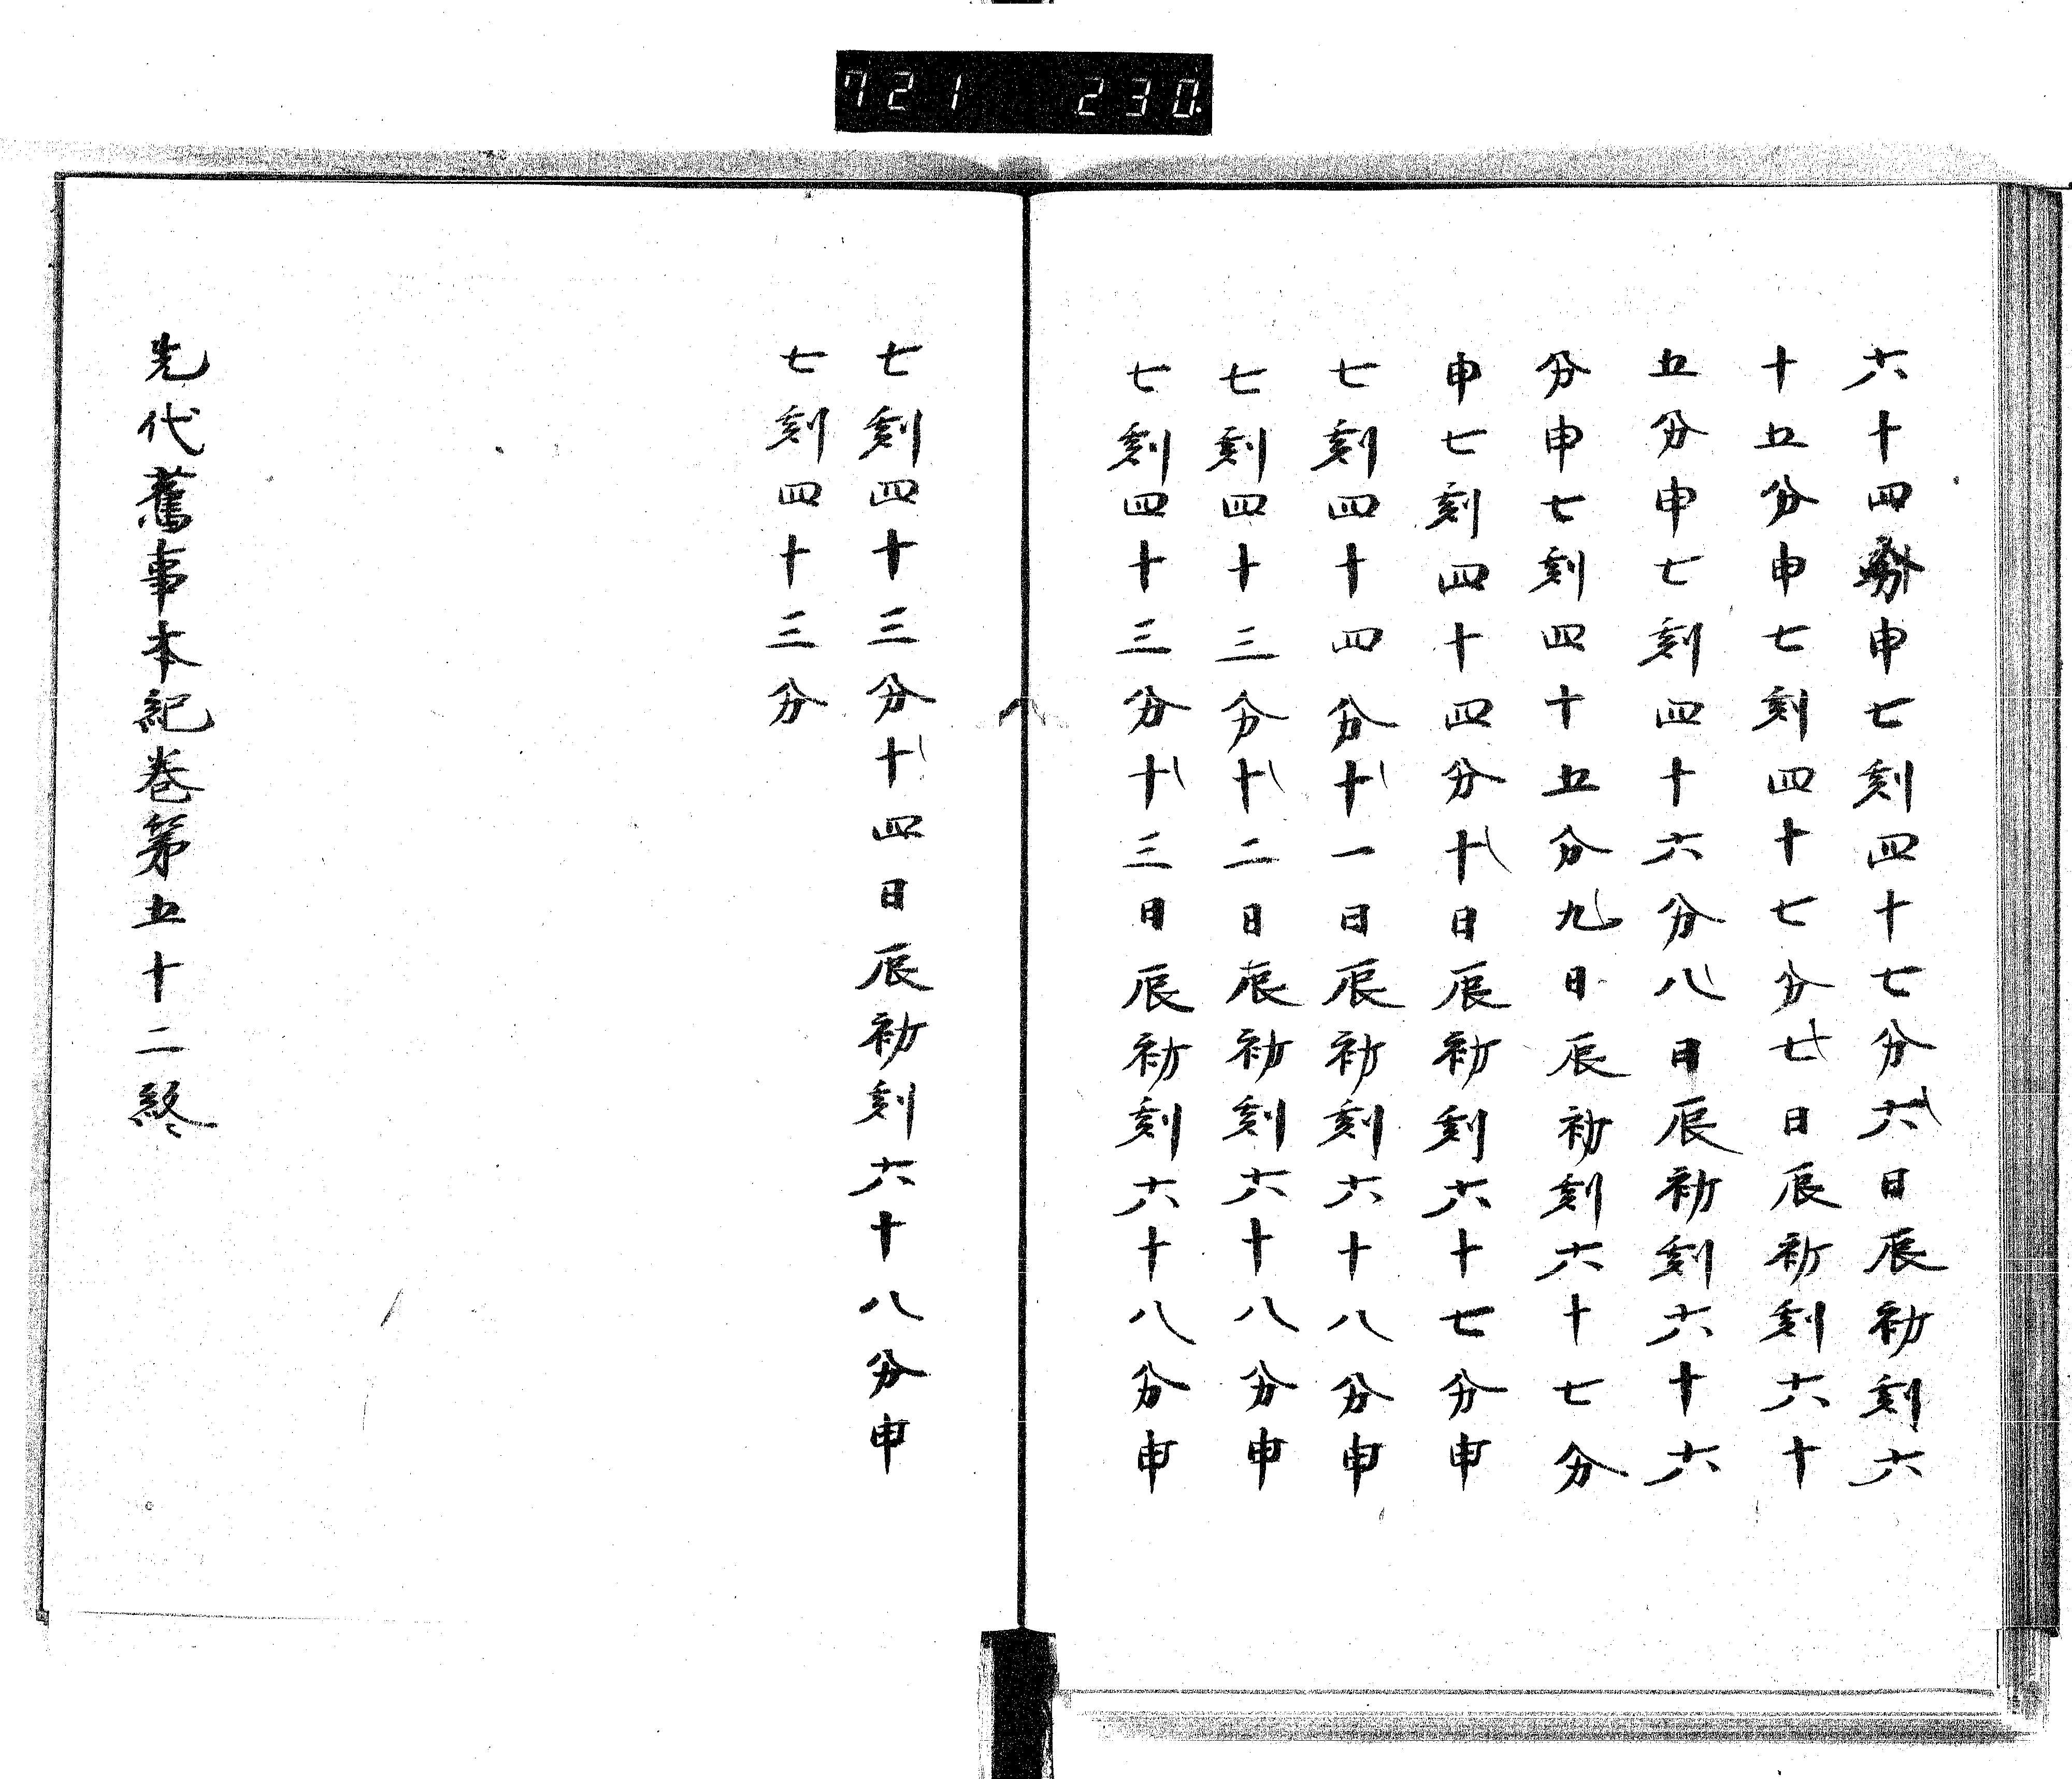 721 230
六十四分申七刻四十七分六日辰初刻六
十五分申七刻四十七分七日辰初刻六十
五分申七刻四十六分八日辰初刻六十六
分申七刻四十五分九日辰初刻六十七分
申七刻四十四分十日辰初刻六十七分申
七刻四十四分十一日辰初刻六十八分申
七刻四十三分十二日辰初刻六十八分申
七刻四十三分十三日辰初刻六十八分申
七刻四十三分十四日辰初刻六十八分申
七刻四十三分
先代舊事本紀巻第五十二終